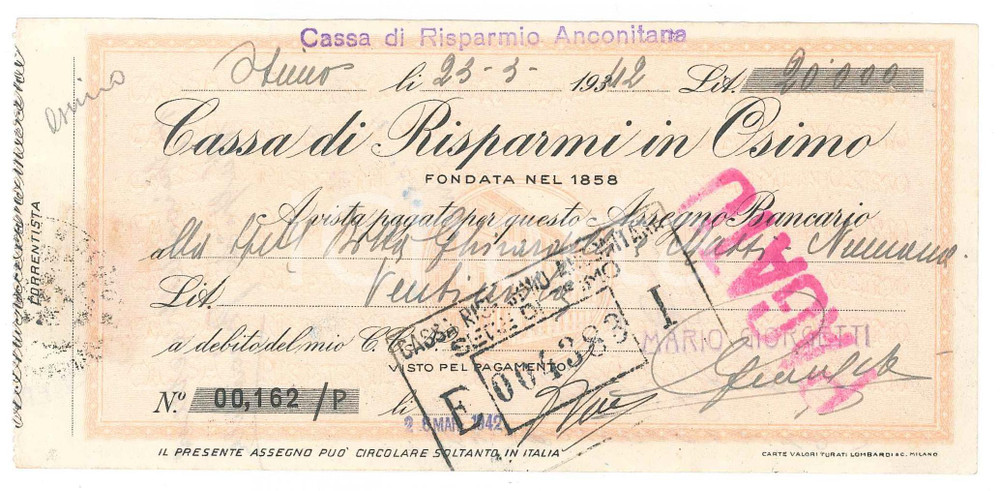 Cassa di Risparmio Anconitana
Osimo li 23-3- 1942 Lit. 20.000
Cassa di Risparmi in Osimo
FONDATA NEL 1858
A vista pagate per questo Assegno Bancario
alla Numana
Lit. Ventimila
a debito del mio C.
MARIO GIORGETTI
VISTO PEL PAGAMENTO
Nº 00,162 /P li
28 MAR 1942
IL PRESENTE ASSEGNO PUO' CIRCOLARE SOLTANTO IN ITALIA
CARTE VALORI TURATI LOMBARDI & C. MILANO
CORRENTISTA
Osimo
CASSA RISPARMIO ANCONITANA
SEDE DI OSIMO
E 004388 I
PAGATO